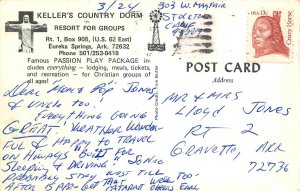 3/24
KELLER'S COUNTRY DORM
RESORT FOR GROUPS
Rt. 1, Box 908, (U.S. 62 East)
Eureka Springs, Ark. 72632
Phone 501/253-8418
Famous PASSION PLAY PACKAGE in-
cludes everything — lodging, meals, tickets,
and recreation — for Christian groups of
all ages!
303 W. MAYFAIR
USA 13c Crazy Horse
POST CARD
Address
Dear Mom & Pop Jones
& Uncle too!
Everything going
great. Weather wonder-
ful & happy to travel
on always "built for
sleeping & driving".
probably stay west till
after
MR & MRS
Lloyd Jones
RT 2
Gravette, Ark
72736